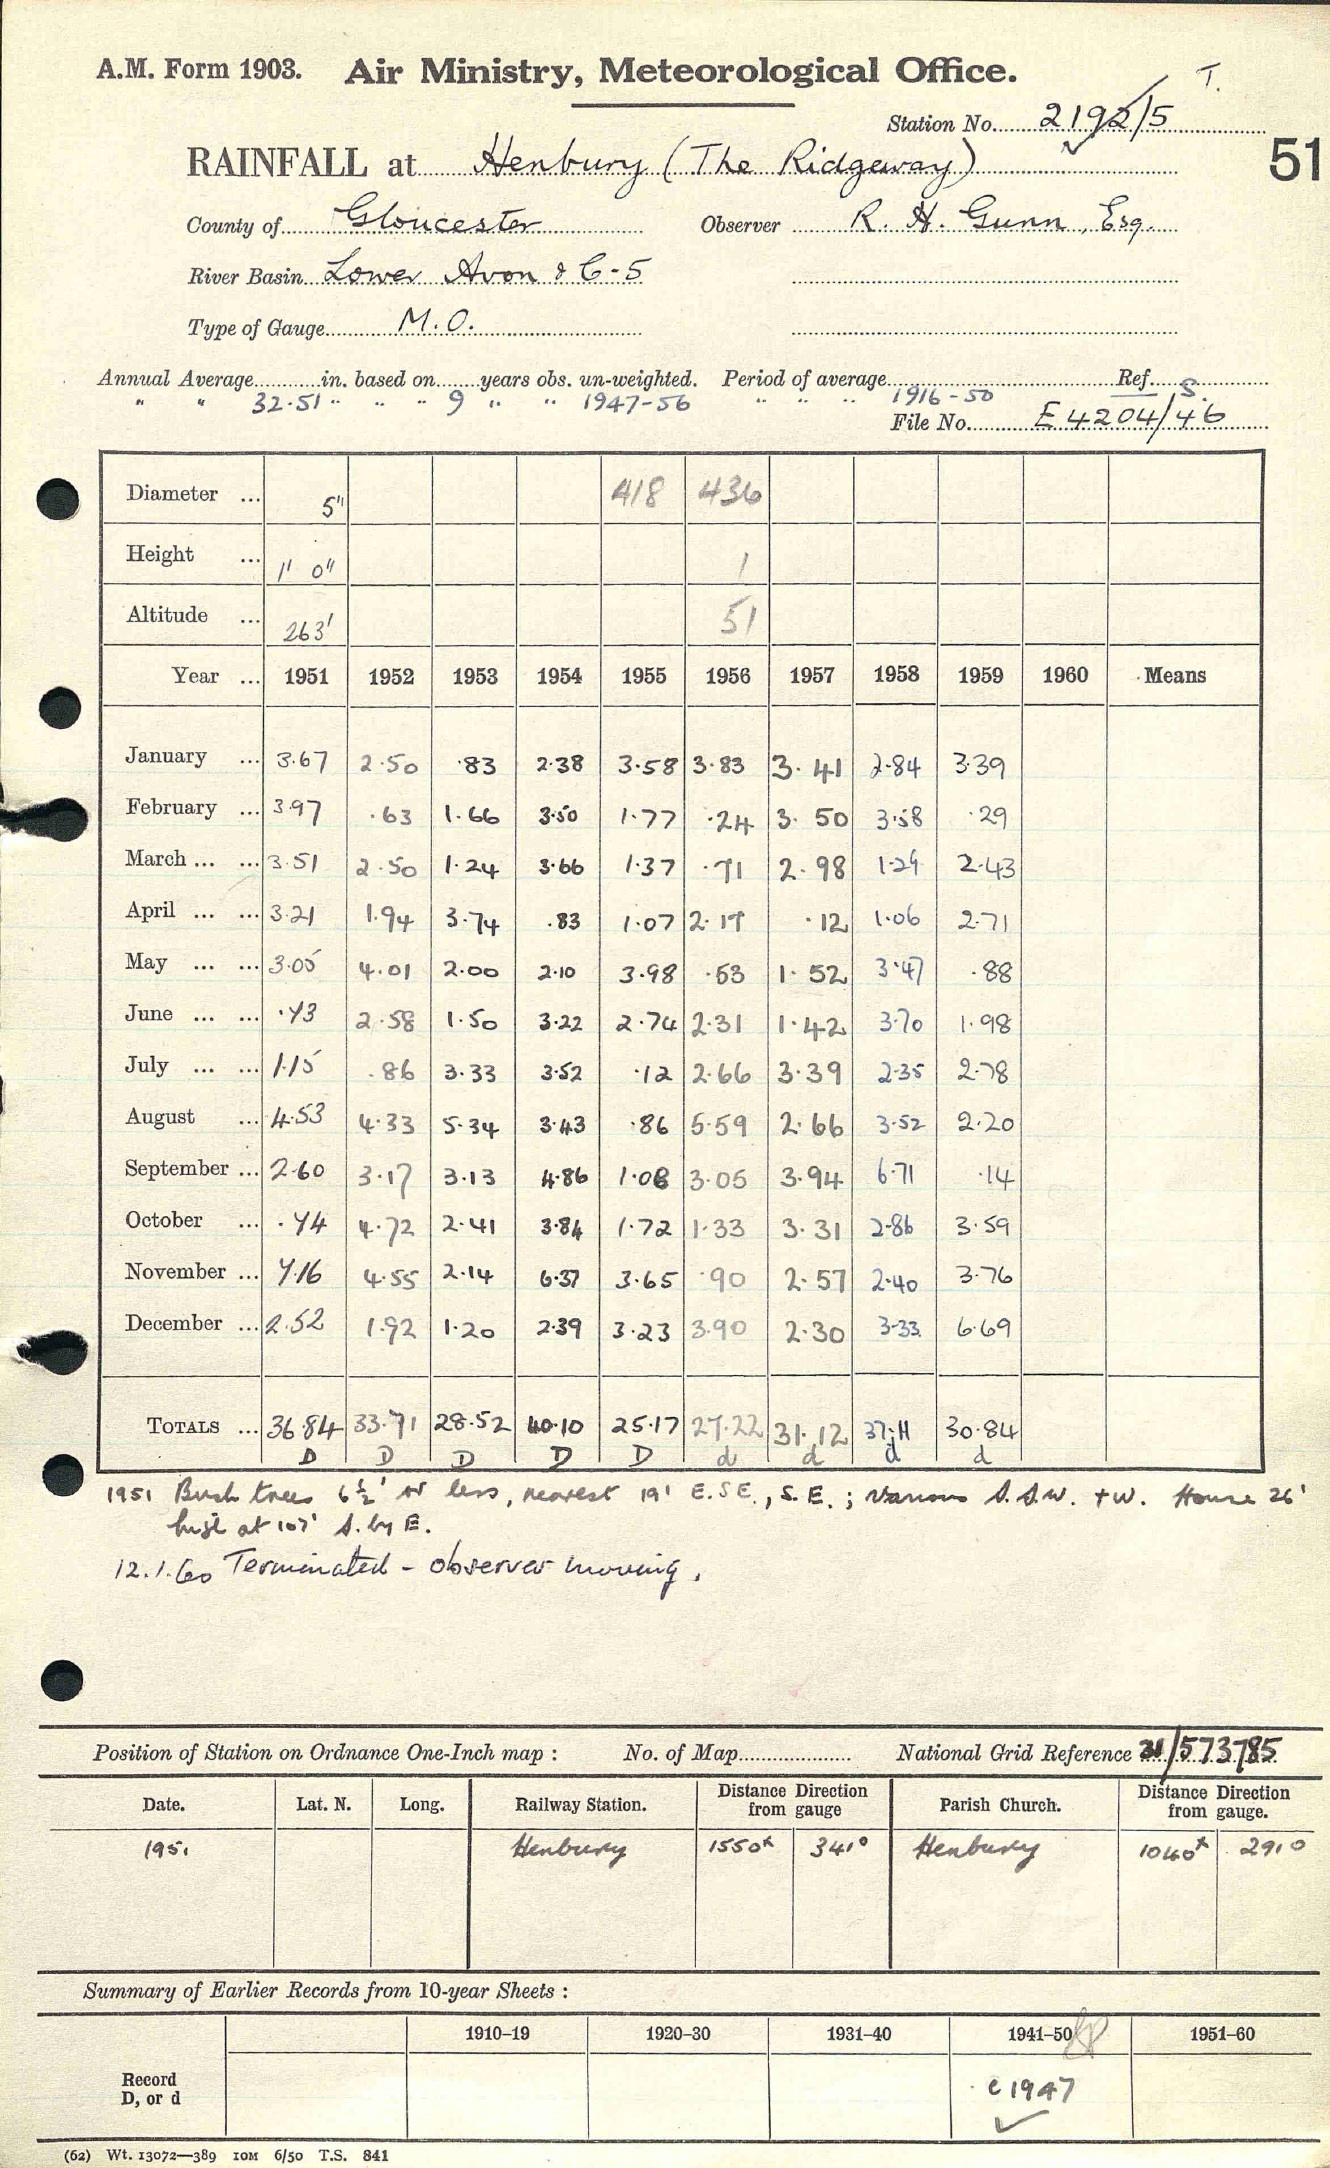 A.M. Form 1903. Air Ministry, Meteorological Office. T.
Station No. 2192/5
51
RAINFALL at Henbury (The Ridgeway)
County of Gloucester Observer R. H. Gunn, Esq.
River Basin Lower Avon & C-5
Type of Gauge M.O.
Annual Average in. based on years obs. un-weighted. Period of average Ref. S.
" " 32.51 " " " 9 " " 1947-56 " " " 1916-50
File No. E4204/46
Diameter ... 5" 418 436
Height ... 1' 0" 1
Altitude ... 263' 51
Year ... 1951 1952 1953 1954 1955 1956 1957 1958 1959 1960 Means
January ... 3.67 2.50 .83 2.38 3.58 3.83 3.41 2.84 3.39
February ... 3.97 .63 1.66 3.50 1.77 .24 3.50 3.58 .29
March ... ... 3.51 2.50 1.24 3.66 1.37 .71 2.98 1.29 2.43
April ... ... 3.21 1.94 3.74 .83 1.07 2.17 .12 1.06 2.71
May ... ... 3.05 4.01 2.00 2.10 3.98 .53 1.52 3.47 .88
June ... ... .73 2.58 1.50 3.22 2.74 2.31 1.42 3.70 1.98
July ... ... 1.15 .86 3.33 3.52 .12 2.66 3.39 2.35 2.78
August ... 4.53 4.33 5.34 3.43 .86 5.59 2.66 3.52 2.20
September ... 2.60 3.17 3.13 4.86 1.08 3.05 3.94 6.71 .14
October ... .74 4.72 2.41 3.84 1.72 1.33 3.31 2.86 3.59
November ... 7.16 4.55 2.14 6.37 3.65 .90 2.57 2.40 3.76
December ... 2.52 1.92 1.20 2.39 3.23 3.90 2.30 3.33 6.69
TOTALS ... 36.84 33.71 28.52 40.10 25.17 27.22 31.12 37.11 30.84
D D D D D d d d d
1951 Bush trees 6½' or less, nearest 19' E.SE., S.E.; various S.S.W. + W. House 26'
high at 107' S. by E.
12.1.60 Terminated - observer moving.
Position of Station on Ordnance One-Inch map : No. of Map National Grid Reference 31/573785
Date. Lat. N. Long. Railway Station. Distance from gauge Direction Parish Church. Distance from gauge. Direction
1951 Henbury 1550x 341° Henbury 1040x 291°
Summary of Earlier Records from 10-year Sheets :
1910–19 1920–30 1931–40 1941–50 1951–60
Record
D, or d
c1947
(62) Wt. 13072—389 10M 6/50 T.S. 841